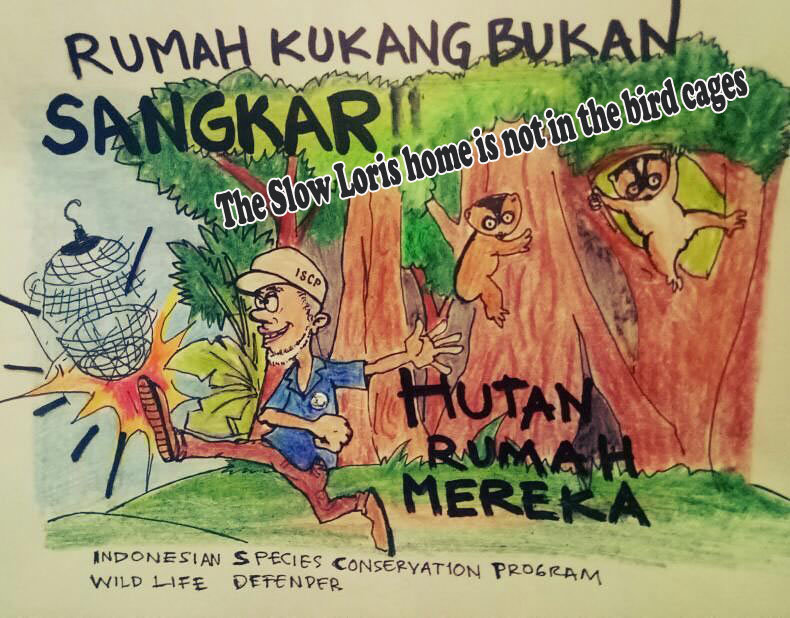 RUMAH KUKANG BUKAN
SANGKAR!!
The Slow Loris home is not in the bird cages
ISCP
HUTAN
RUMAH
MEREKA
INDONESIAN SPECIES CONSERVATION PROGRAM
WILD LIFE DEFENDER